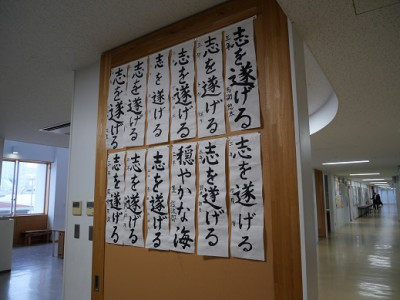 志を遂げる
志を遂げる
志を遂げる
志を遂げる
志を遂げる
志を遂げる
志を遂げる
志を遂げる
穏やかな海
志を遂げる
志を遂げる
志を遂げる